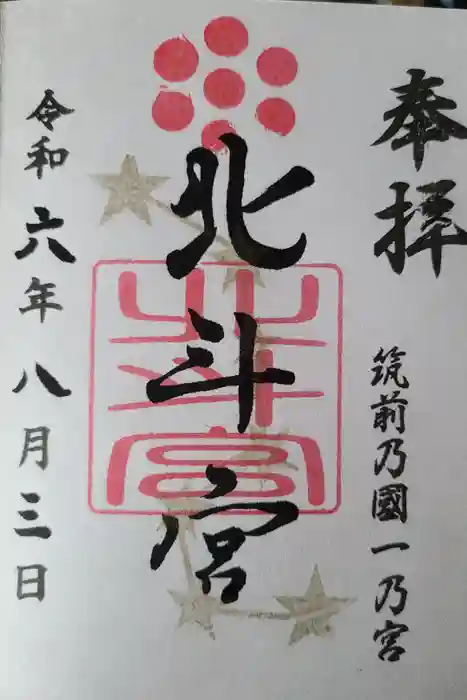 奉拝
筑前乃國一乃宮
北斗宮
北斗宮
令和六年八月三日